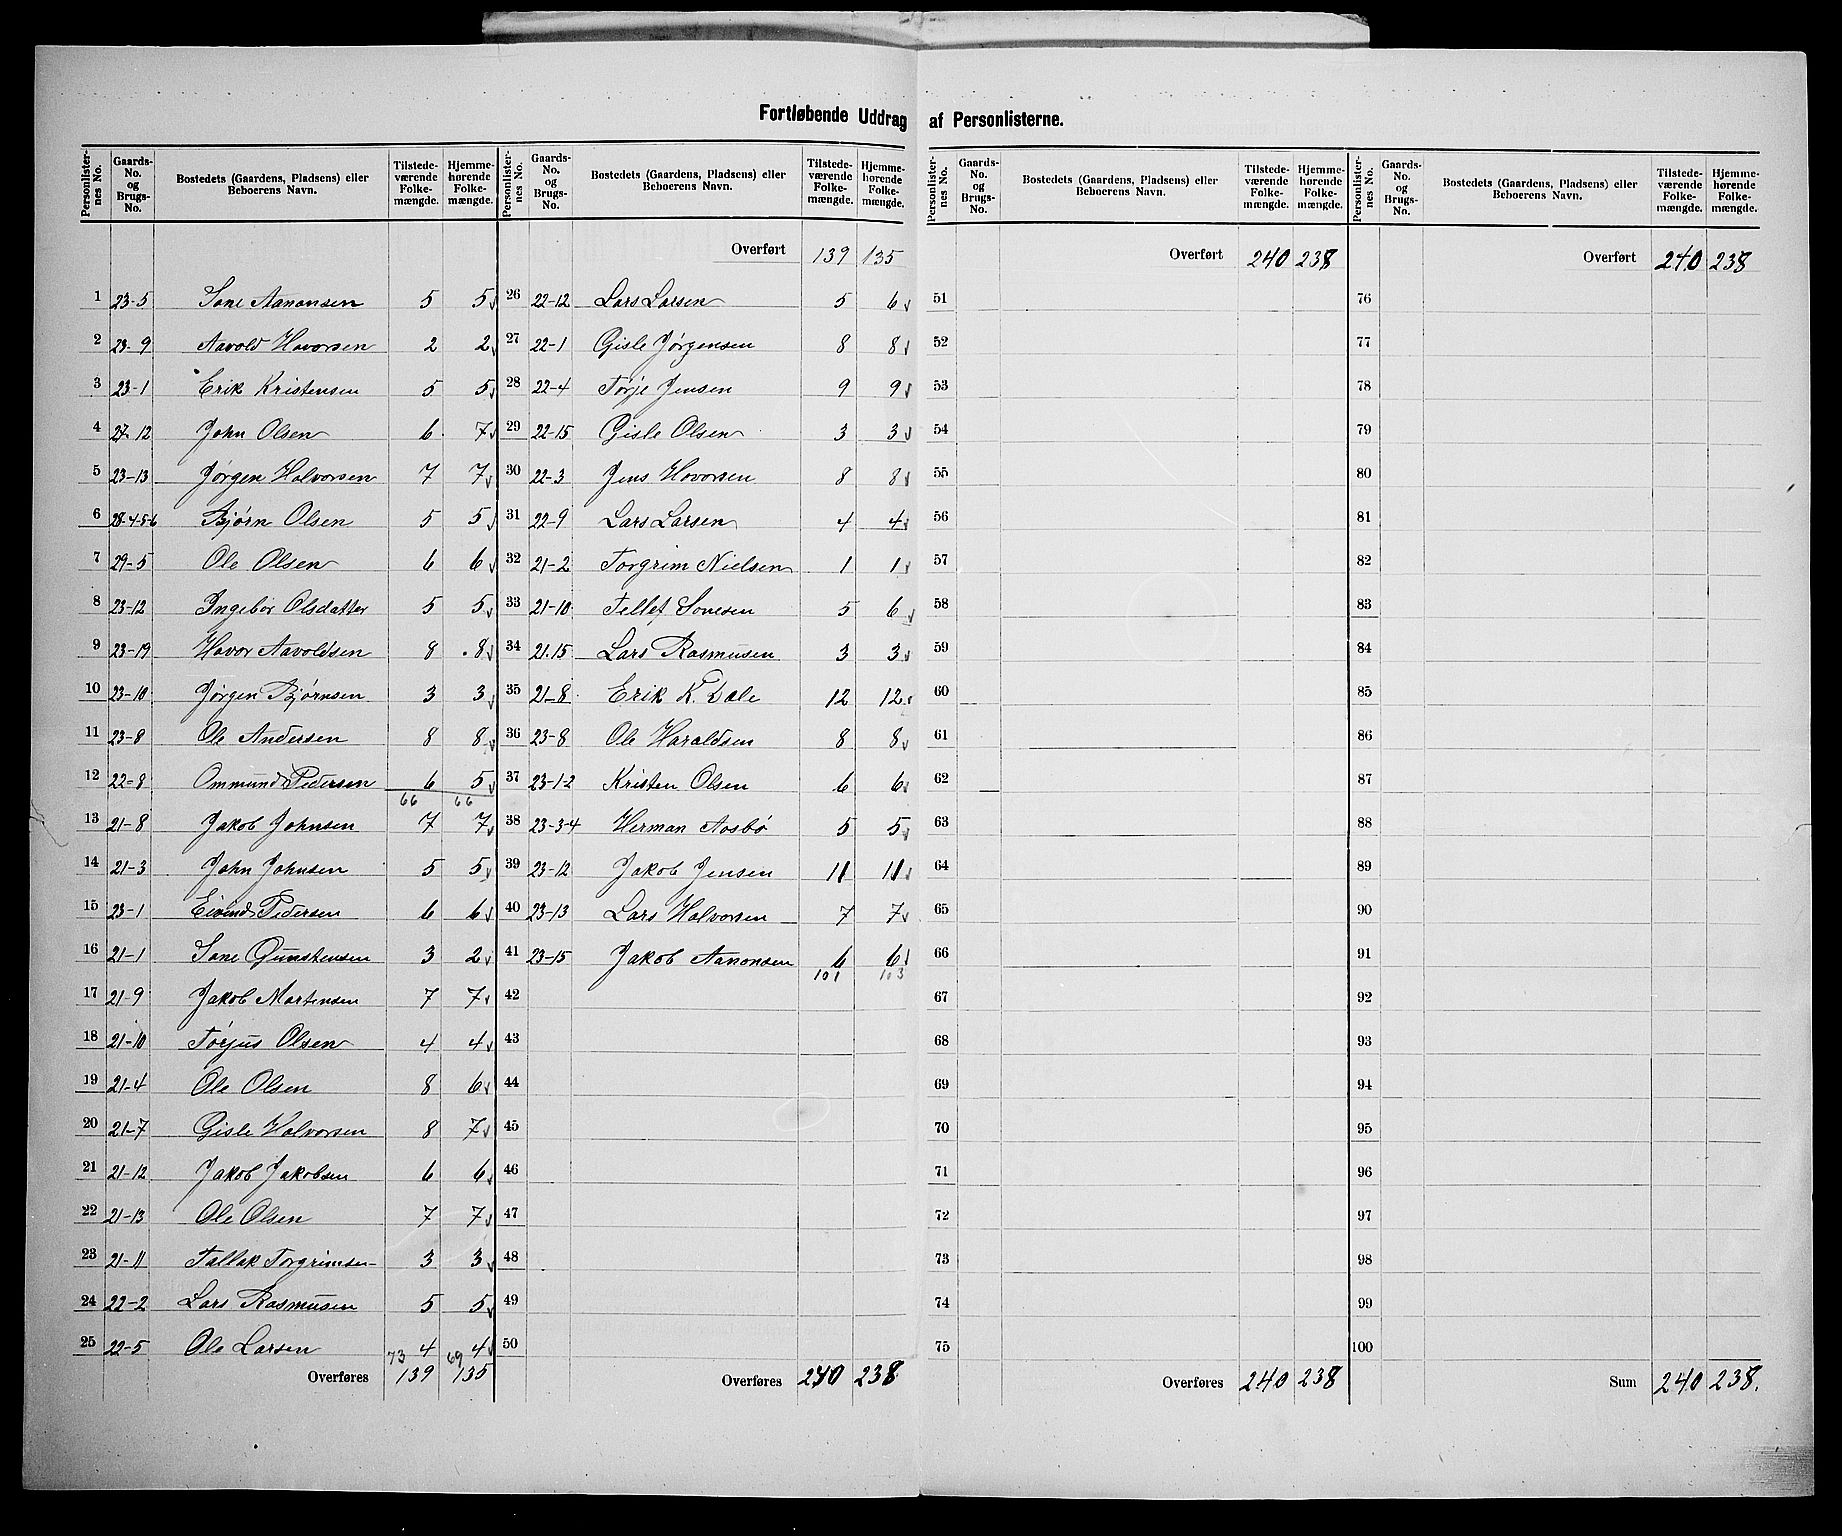 Fortløbende Uddrag af Personlisterne.
Personlister-nes No. | Gaards-No. og Brugs-No. | Bostedets (Gaardens, Pladsens) eller Beboerens Navn. | Tilstede-værende Folke-mængde. | Hjemme-hørende Folke-mængde.
1 23-5 Sone Aanonsen 5 5
2 23-9 Aavold Havorsen 2 2
3 23-1 Erik Kristensen 5 5
4 27-12 John Olsen 6 7
5 23-13 Jørgen Halvorsen 7 7
6 28-4-5-6 Bjørn Olsen 5 5
7 29-5 Ole Olsen 6 6
8 23-12 Ingebor Olsdatter 5 5
9 23-19 Havor Aavoldsen 8 8
10 23-10 Jørgen Bjørnsen 3 3
11 23-8 Ole Andersen 8 8
12 22-8 Ommund Pedersen 6 5
66 66
13 21-8 Jakob Johnsen 7 7
14 21-3 John Johnsen 5 5
15 23-1 Eivind Pedersen 6 6
16 21-1 Sone Gunstensen 3 2
17 21-9 Jakob Martensen 7 7
18 21-10 Torjus Olsen 4 4
19 21-4 Ole Olsen 8 6
20 21-7 Gisle Halvorsen 8 7
21 21-12 Jakob Jakobsen 6 6
22 21-13 Ole Olsen 7 7
23 21-11 Tallak Torgrimsen 3 3
24 22-2 Lars Rasmusen 5 5
25 22-5 Ole Larsen 4 4
73 69
Overføres 139 135
Personlister-nes No. | Gaards-No. og Brugs-No. | Bostedets (Gaardens, Pladsens) eller Beboerens Navn. | Tilstede-værende Folke-mængde. | Hjemme-hørende Folke-mængde.
Overført 139 135
26 22-12 Lars Larsen 5 6
27 22-1 Gisle Jørgensen 8 8
28 22-4 Torje Jensen 9 9
29 22-15 Gisle Olsen 3 3
30 22-3 Jens Hovorsen 8 8
31 22-9 Lars Larsen 4 4
32 21-2 Torgrim Nielsen 1 1
33 21-10 Tellef Sonesen 5 6
34 21.15 Lars Rasmusen 3 3
35 21-8 Erik K. Dale 12 12
36 23-8 Ole Haraldsen 8 8
37 23-1-2 Kristen Olsen 6 6
38 23-3-4 Herman Aosbø 5 5
39 23-12 Jakob Jensen 11 11
40 23-13 Lars Halvorsen 7 7
41 23-15 Jakob Aanonsen 6 6
101 103
42
43
44
45
46
47
48
49
50
Overføres 240 238
Personlister-nes No. | Gaards-No. og Brugs-No. | Bostedets (Gaardens, Pladsens) eller Beboerens Navn. | Tilstede-værende Folke-mængde. | Hjemme-hørende Folke-mængde.
Overført 240 238
51
52
53
54
55
56
57
58
59
60
61
62
63
64
65
66
67
68
69
70
71
72
73
74
75
Overføres 240 238
Personlister-nes No. | Gaards-No. og Brugs-No. | Bostedets (Gaardens, Pladsens) eller Beboerens Navn. | Tilstede-værende Folke-mængde. | Hjemme-hørende Folke-mængde.
Overført 240 238
76
77
78
79
80
81
82
83
84
85
86
87
88
89
90
91
92
93
94
95
96
97
98
99
100
Sum 240 238.